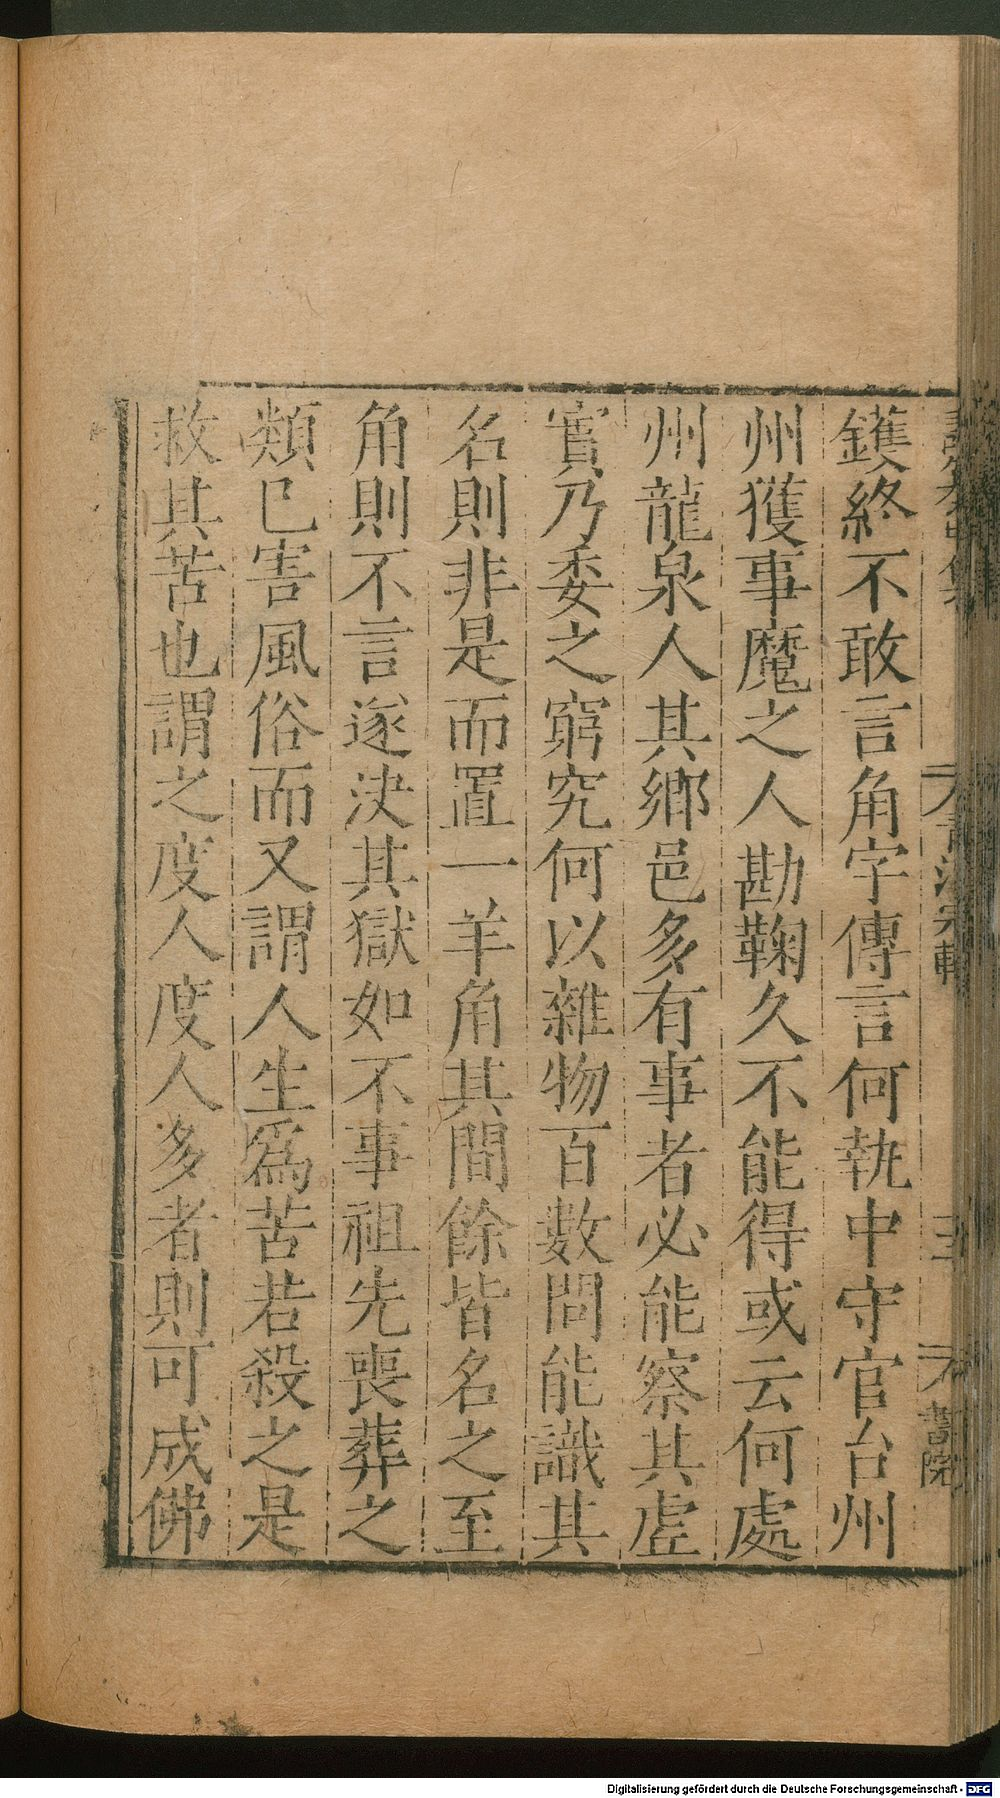 鑊終不敢言角字傳言何執中守官台州
州獲事魔之人勘鞠久不能得或云何處
州龍泉人其鄉邑多有事者必能察其虛
實乃委之窮究何以雜物百數問能識其
名則非是而置一羊角其間餘皆名之至
角則不言遂決其獄如不事祖先喪葬之
類巳害風俗而又謂人生爲苦若殺之是
救其苦也謂之度人度人多者則可成佛
書院
Digitalisierung gefördert durch die Deutsche Forschungsgemeinschaft - DFG